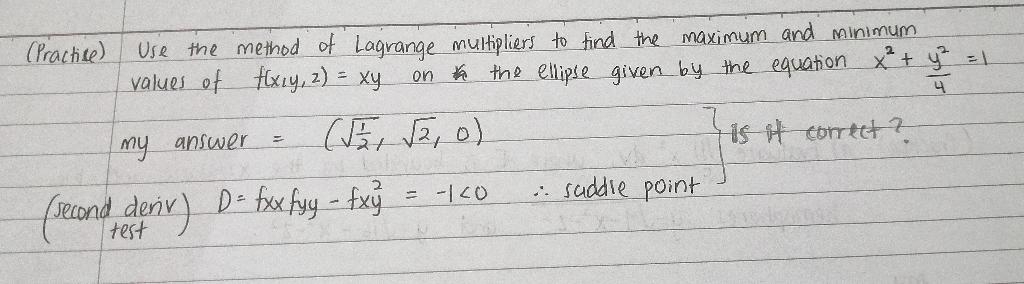 (Practice) Use the method of Lagrange multipliers to find the maximum and minimum
values of f(x,y,z) = xy on the ellipse given by the equation x² + y²/4 = 1
my answer = (√½, √2, 0) } is it correct?
(second deriv test) D = fxx fyy - fxy² = -1<0 ∴ saddle point